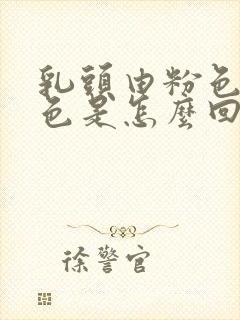 乳頭由粉色
色是怎麼回
徐警官